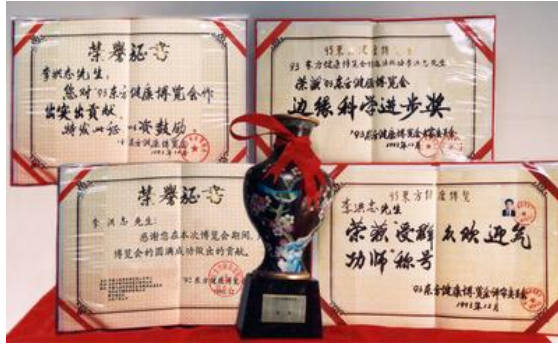 荣誉证书
李洪志先生:
您对'93东方健康博览会作
出突出贡献,
特发此证 以资鼓励。
'93东方健康博览会
1993年12月
'93东方健康博览会
荣获'93东方健康博览会
边缘科学进步奖
'93东方健康博览会评审委员会
1993年12月
荣誉证书
李洪志先生:
感谢您在本次博览会期间,
博览会的圆满成功做出的贡献。
'92东方健康博览会
93东方健康博览
李洪志先生
荣获受群众欢迎气
功师称号
'93东方健康博览会评审委员会
1993年12月